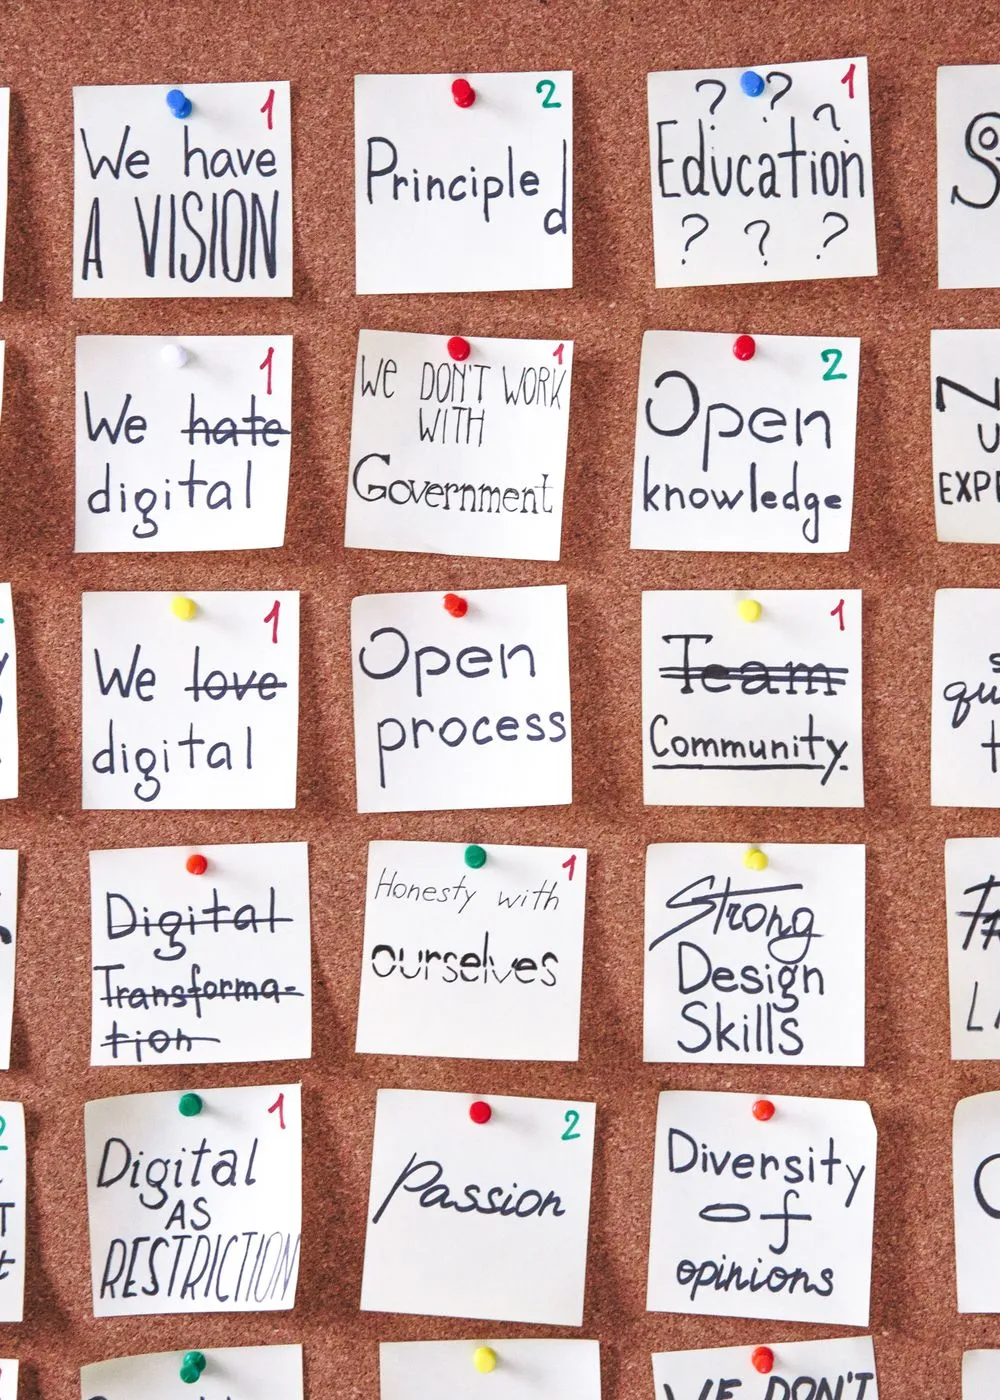 1
We have
A VISION
2
Principled
1
? ? ?
Education
? ? ?
1
We hate
digital
1
WE DON'T WORK
WITH
Government
2
Open
knowledge
EXP
1
We love
digital
Open
process
1
Team
Community.
qu
Digital
Transforma-
tion
1
Honesty with
ourselves
Strong
Design
Skills
2
1
Digital
AS
RESTRICTION
2
Passion
Diversity
of
opinions
WE DON'T